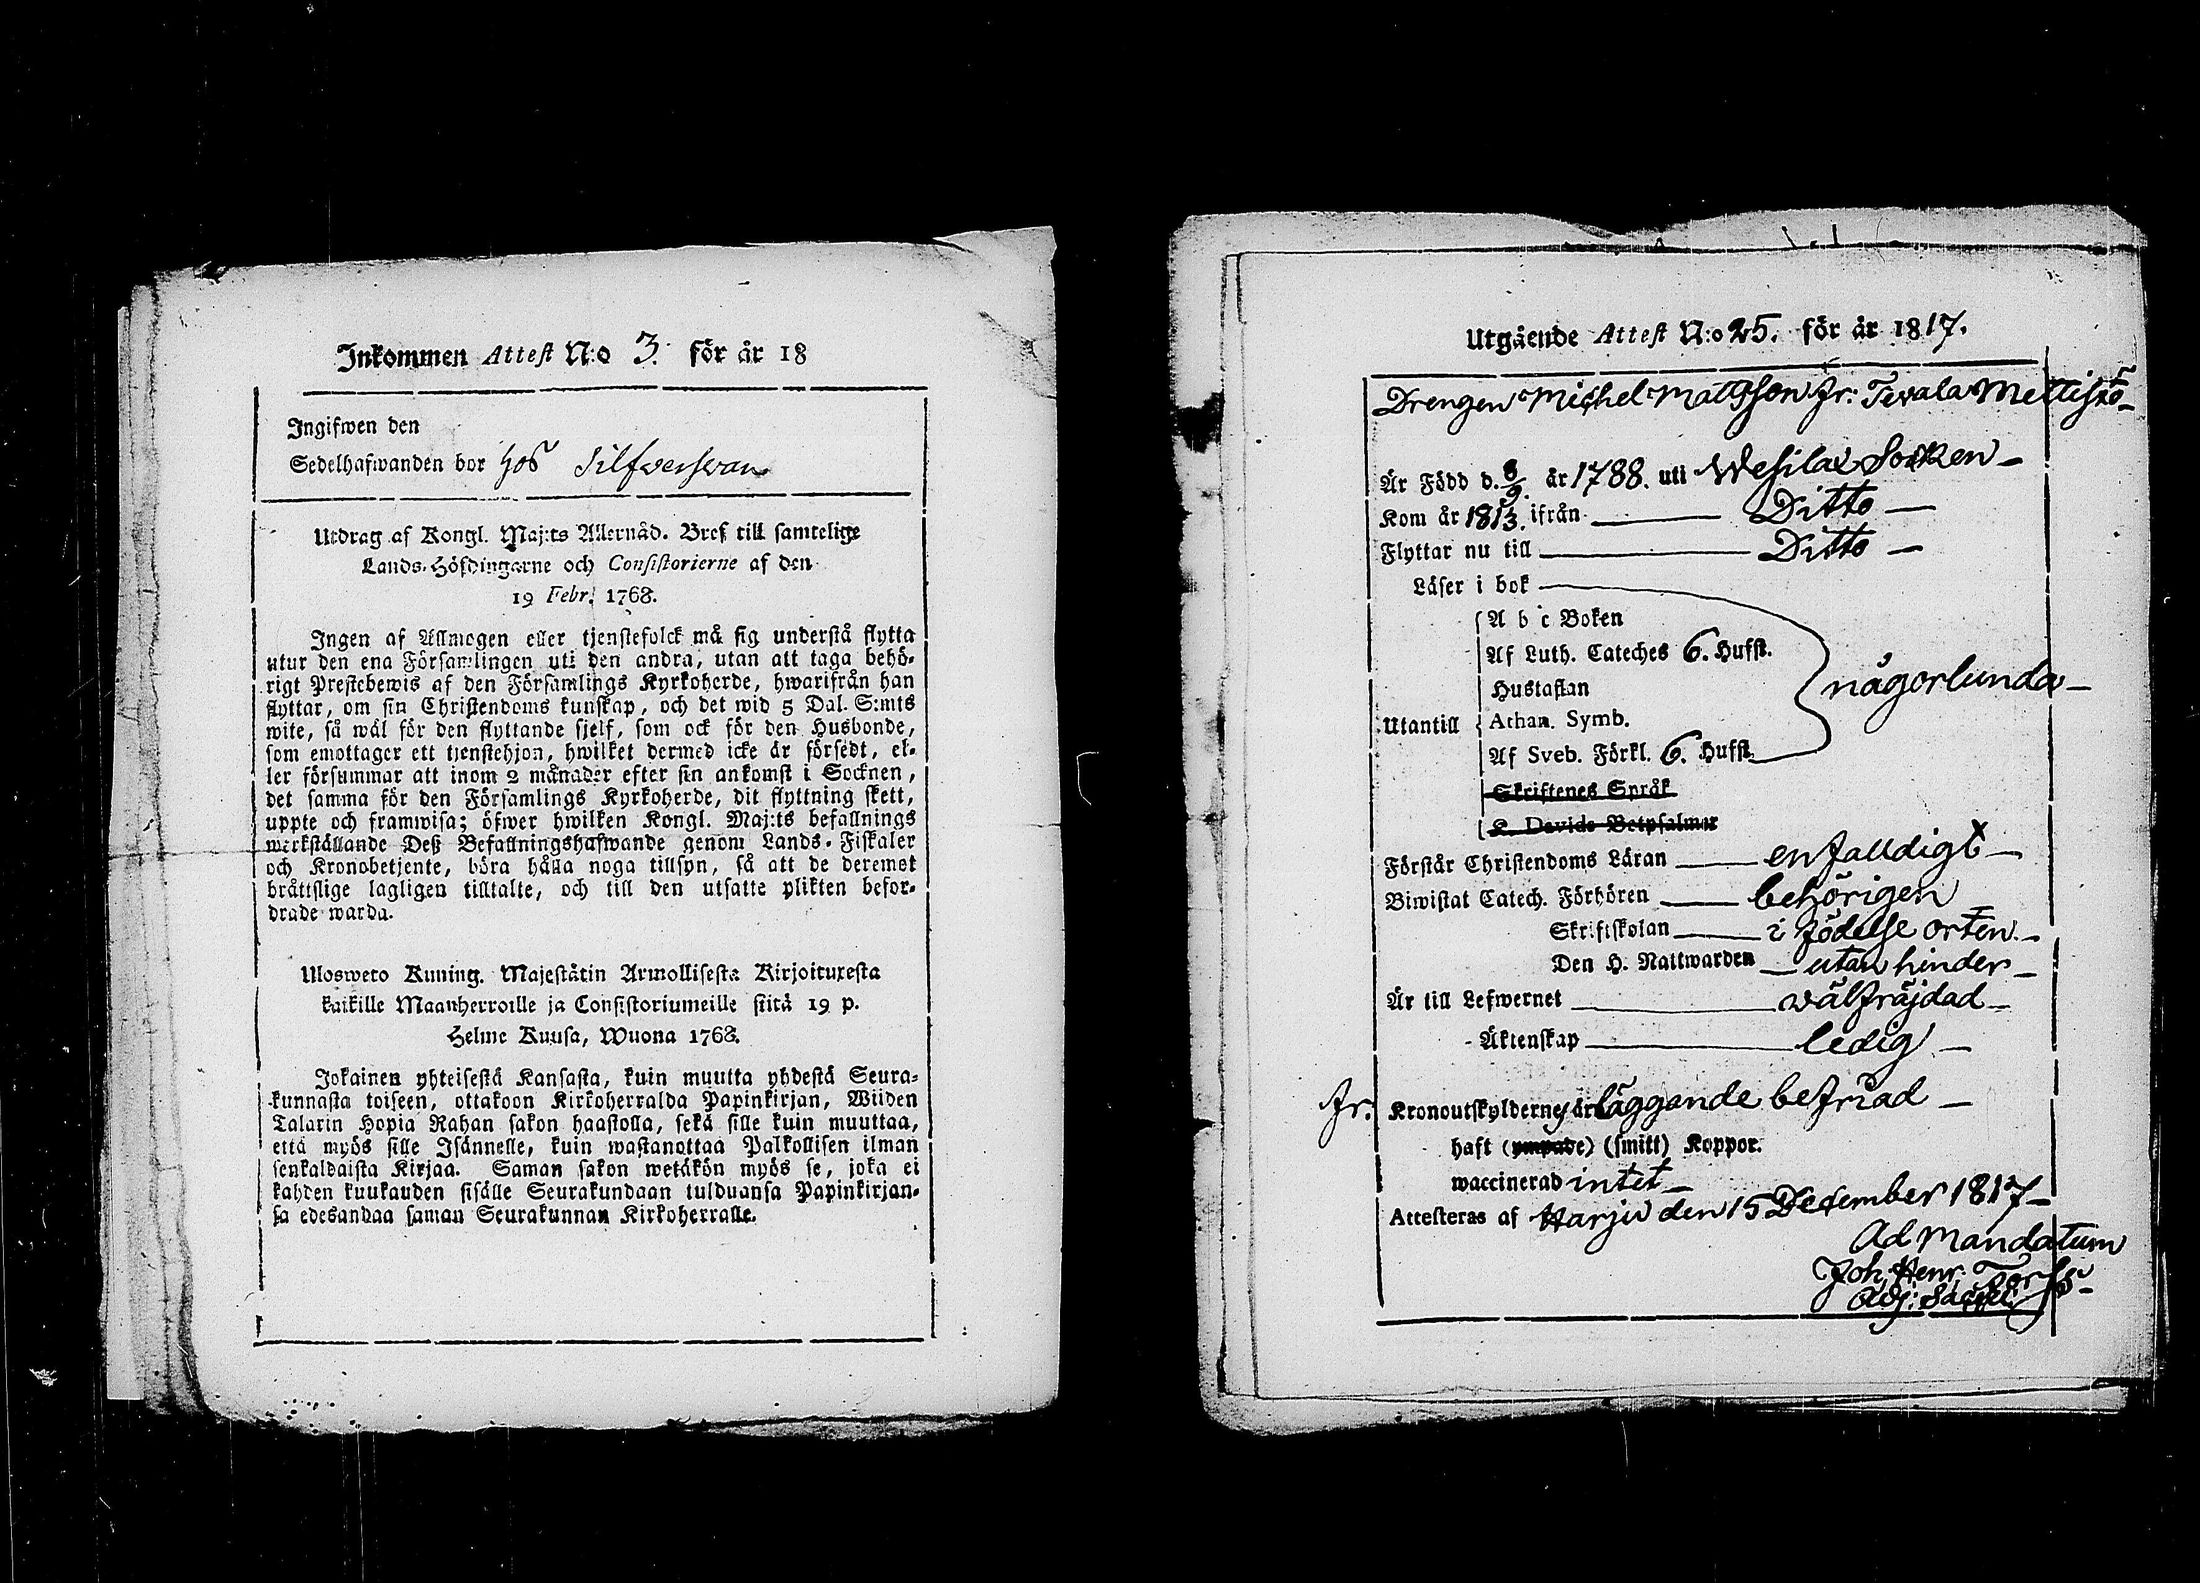 Inkommen Attest N:o 3. för år 18
Ingifwen den
Sedelhafwanden bor hos Silfversvan
Utdrag af Kongl. Maj:ts Allernåd. Bref till samtelige
Lands-Höfdingarne och Consistorierne af den
19 Febr. 1768.
Ingen af Allmogen eller tjenstefolck må sig understå flytta
utur den ena Församlingen uti den andra, utan att taga behö-
rigt Prestebewis af den Församlings Kyrkoherde, hwarifrån han
flyttar, om sin Christendoms kunskap, och det wid 5 Dal. S:mts
wite, så wäl för den flyttande sjelf, som ock för den Husbonde,
som emottager ett tjenstehjon, hwilket dermed icke är försedt, el-
ler försummar att inom 2 månader efter sin ankomst i Socknen,
det samma för den Församlings Kyrkoherde, dit flyttning skett,
uppte och framwisa; öfwer hwilken Kongl. Maj:ts befallnings
werkställande Deß Befallningshafwande genom Lands-Fiskaler
och Kronobetjente, böra hålla noga tillsyn, så att de deremot
bråttslige lagligen tilltalte, och till den utsatte plikten befor-
drade warda.
Ulosweto Kuning. Majestätin Armollisesta Kirjoituxesta
kaikille Maanherroille ja Consistoriumeille siitä 19 p.
Helme Kuusa, Wuona 1768.
Jokainen yhteisestä Kansasta, kuin muutta yhdestä Seura-
kunnasta toiseen, ottakoon Kirkoherralda Papinkirjan, Wiiden
Talarin Hopia Rahan sakon haastolla, sekä sille kuin muuttaa,
että myös sille Isännelle, kuin wastanottaa Palkollisen ilman
senkaldaista Kirjaa. Saman sakon wetäkön myös se, joka ei
kahden kuukauden sisälle Seurakundaan tulduansa Papinkirjan-
sa edesandaa saman Seurakunnan Kirkoherralle.
Utgående Attest N:o 25. för år 1817.
Drengen Michel Mattsson fr: Tevala Mettistö
Är Född d. 8/9. år 1788. uti Wesilax Socken
Kom år 1813. ifrån Ditto
Flyttar nu till Ditto
Läser i bok
A b c Boken
Af Luth. Cateches 6. Hufst.
Hustaflan
någorlunda
Utantill Athan. Symb.
Af Sveb. Förkl. 6. Hufst.
Skriftenes Språk
K. Davids Botpsalmer
Förstår Christendoms Läran enfalldigt
Biwistat Catech. Förhören behörigen
Skriftskolan i födelse orten
Den H. Nattwarden utan hinder
Är till Lefwernet välfräjdad
Äktenskap ledig
fr. Kronoutskylderne är läggande befriad
haft (ympade) (smitt) Koppor.
waccinerad intet
Attesteras af Harju den 15 December 1817
Ad mandatum
Joh, Henr,
Adj: Sacell: